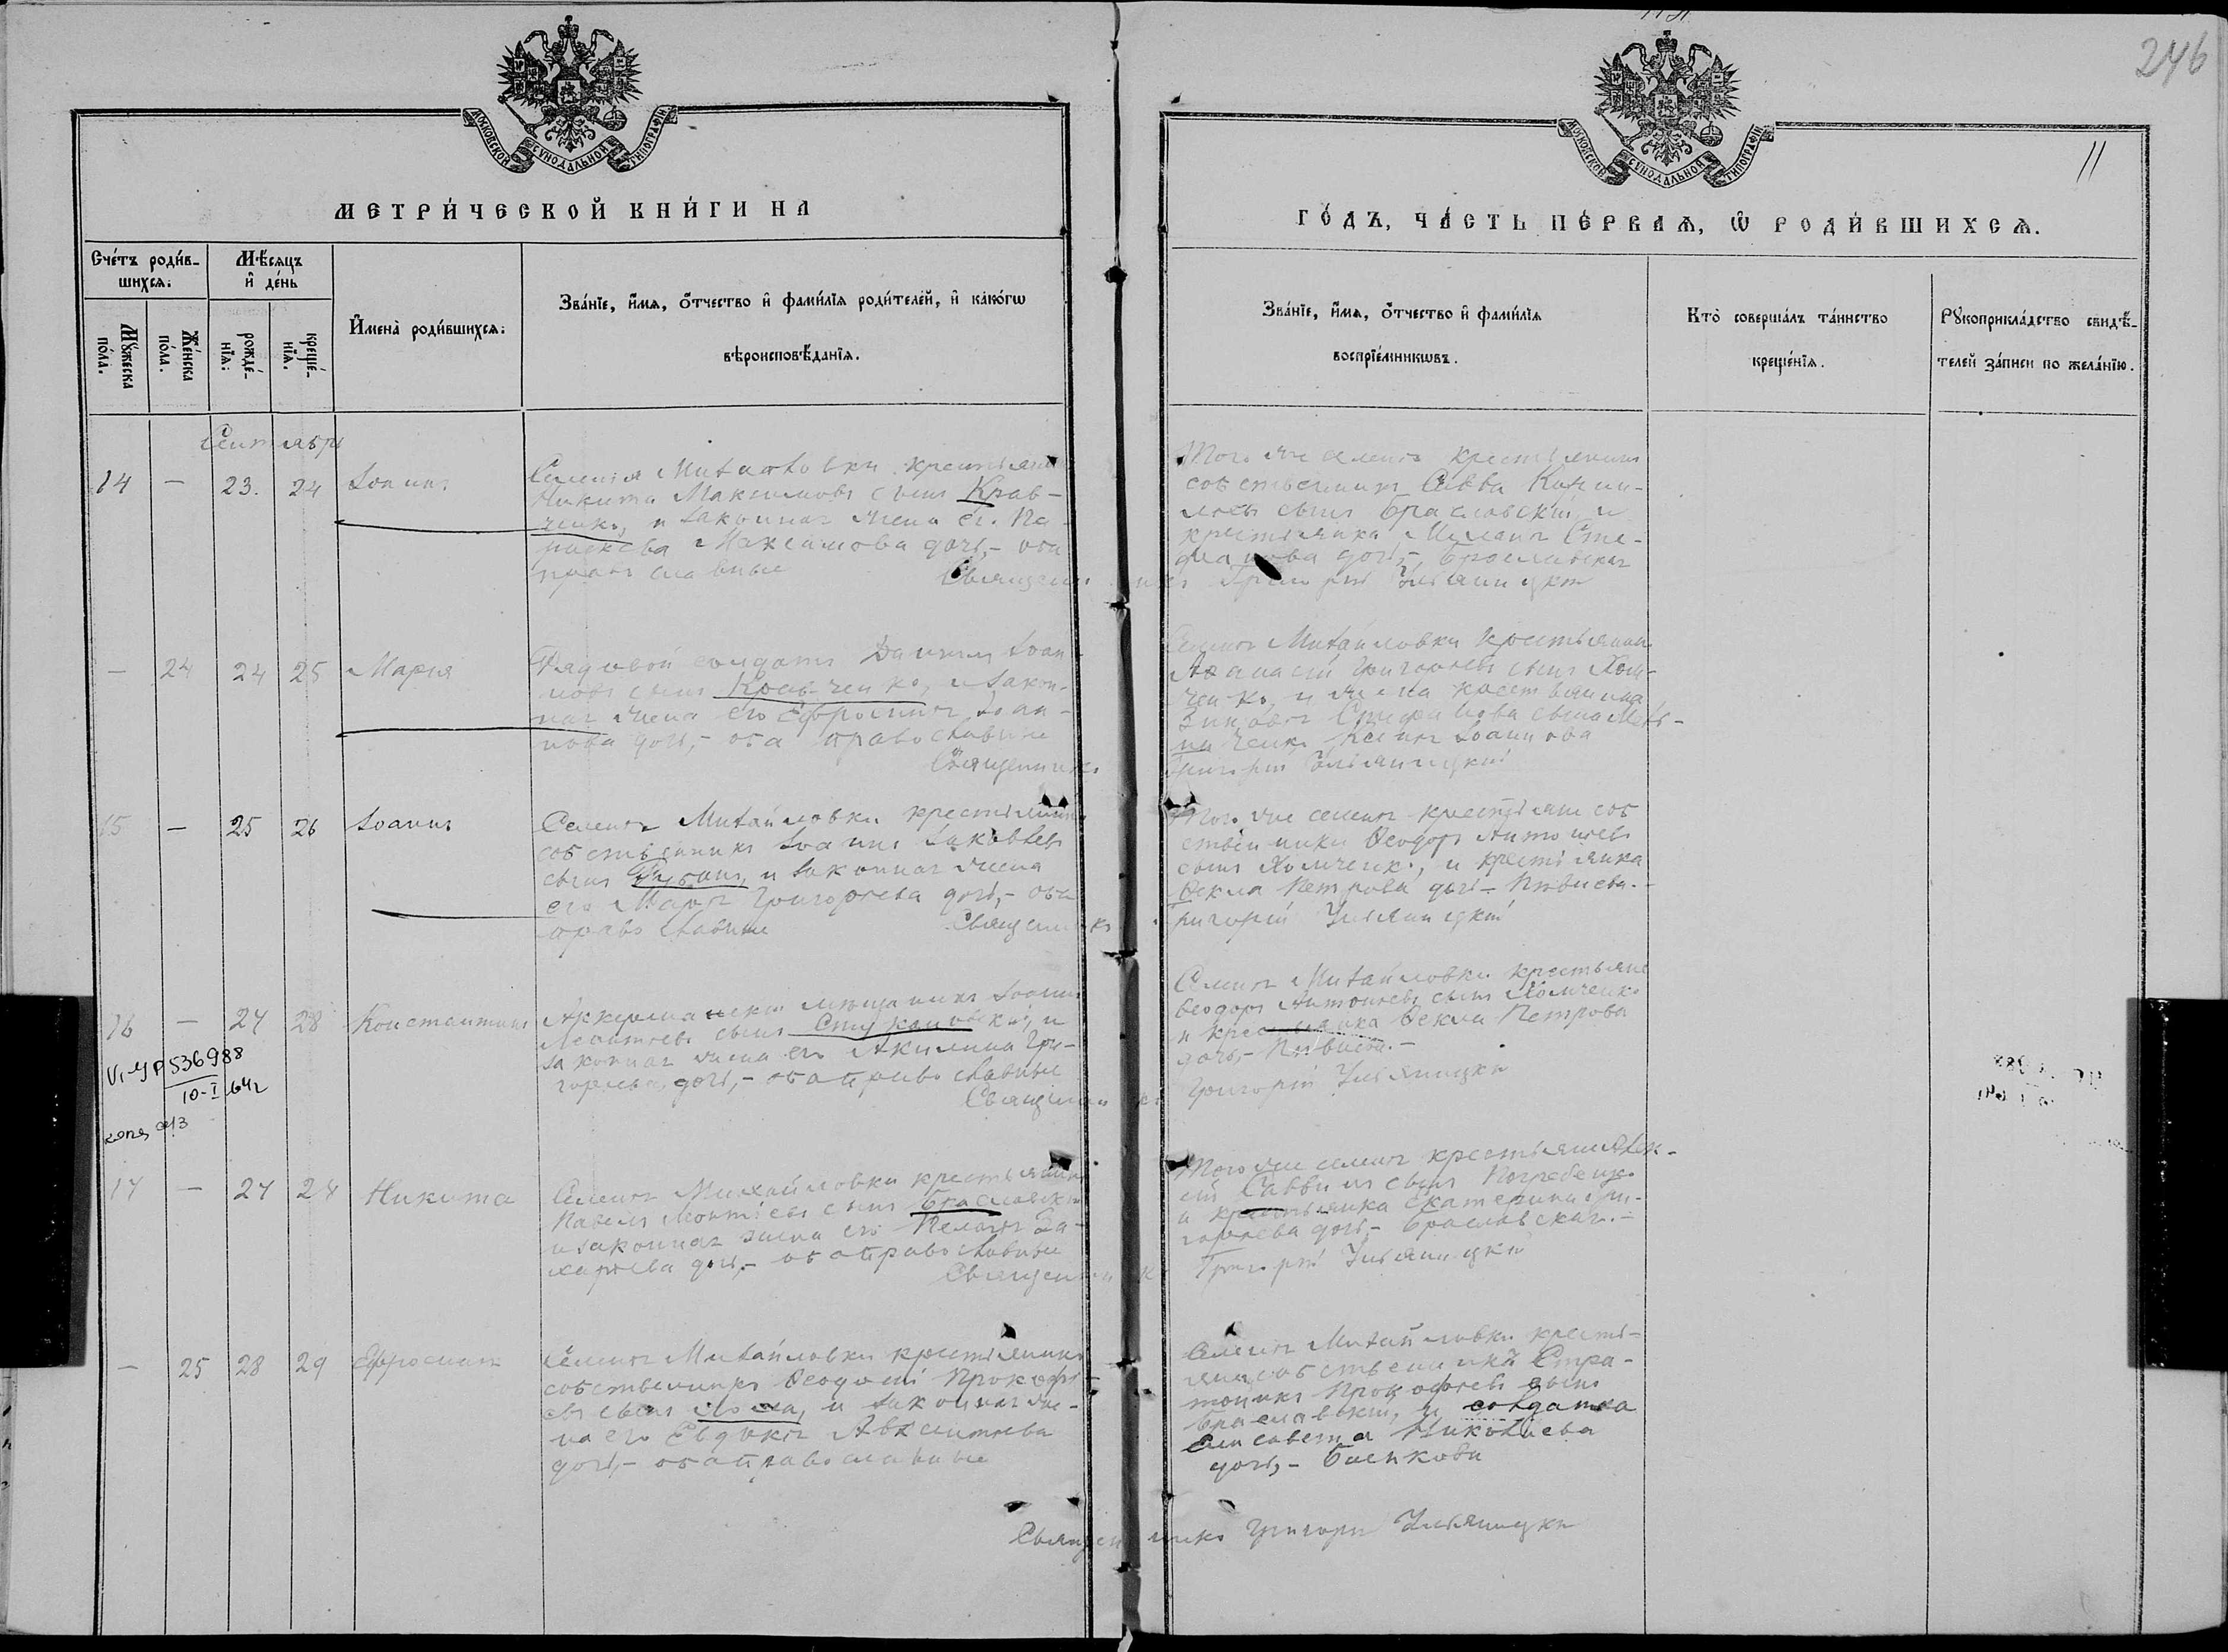 246
11
МОСКОВСКОЙ СѴНОДАЛЬНОЙ ТИПОГРАФІИ
МОСКОВСКОЙ СѴНОДАЛЬНОЙ ТИПОГРАФІИ
МЕТРИ́ЧЕСКОЙ КНИ́ГИ НА
ГО́ДЪ, ЧА́СТЬ ПЕ́РВАЯ, Ѡ РОДИ́ВШИХСЯ.
Сче́тъ роди́в-
шихся:
Мѣ́сяцъ
и де́нь
Му́жеска
по́ла.
Же́нска
по́ла.
рожде́-
нїя:
креще́-
нїя.
И́мена роди́вшихся:
Зва́нїе, и́мя, о́тчество и фами́лїя роди́телей, и како́гѡ
вѣроисповѣ́данїя.
Зва́нїе, и́мя, о́тчество и фами́лїя
воспрїе́мникѡвъ.
Кто̀ соверша́лъ та́инство
креще́нїя.
Рꙋкоприкла́дство свидѣ́-
телей за́писи по жела́нїю.
Сентябрь
14 — 23. 24 Іоаннъ
Селенія Михайловки крестьянинъ
Никита Максимовъ сынъ Крав-
ченко, и законная жена его Па-
раскева Максимова дочь,- оба
православные
Того же селенія крестьянинъ
собственникъ Савва
сынъ Браславскій и
крестьянка Сте-
фанова дочь,- Браславская
Священникъ Григорій Ульяницкій
— 24 24 25 Марія
Рядовой солдатъ Даніилъ Іоан-
новъ сынъ Кравченко, и закон-
ная жена его Ефросинія Іоан-
нова дочь,- оба православные
Селенія Михайловки крестьянинъ
Аѳанасій Григорьевъ сынъ Хом-
ченко, и жена крестьянина
Стефанова сына Мель-
ниченко Ксенія Іоаннова
Священникъ Григорій Ульяницкій
15 — 25 26 Іоаннъ
Селенія Михайловки крестьянинъ
собственникъ Іоаннъ Іаковлевъ
сынъ и законная жена
его Марія Григорьева дочь,- оба
православные
Того же селенія крестьяне соб
ственники Ѳеодоръ Антоньевъ
сынъ Хомченко, и крестьянка
Ѳекла Петрова дочь-
Священникъ Григорій Ульяницкій
16 — 27 28 Константинъ
Аккерманскій мѣщанинъ Іоаннъ
Леонтьевъ сынъ и
законная жена его Акилина Гри-
горьева дочь,- оба православные
Селенія Михайловки крестьяне
Ѳеодоръ Антоньевъ сынъ Хомченко
и крестьянка Ѳекла Петрова
дочь,-
Священникъ Григорій Ульяницкій
536988
10-I 64г
17 — 27 28 Никита
Селенія Михайловки крестьянинъ
Павелъ Леонтьевъ сынъ Браславскій
и законная жена его Пелагія За-
харьева дочь,- оба православные
Того же селенія крестьяне Алек-
сій Саввинъ сынъ
и крестьянка Екатерина Гри-
горьева дочь,- Браславская.-
Священникъ Григорій Ульяницкій
— 25 28 29 Ефросинія
Селенія Михайловки крестьянинъ
собственникъ Ѳеодосій Прокофь-
евъ сынъ и законная же-
на его Евдокія Авксентьева
дочь,- оба православные
Селенія Михайловки кресть-
яне собственникъ Стра-
тоникъ Прокофьевъ сынъ
Браславскій, и солдатка
Елисавета Николаева
дочь,-
Священникъ Григорій Ульяницкій